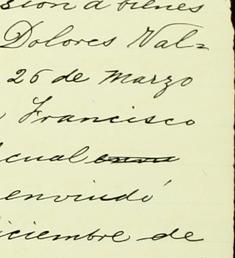 sion a bienes
Dolores Val=
26 de Marzo
Francisco
cual
enviudó
iciembre de